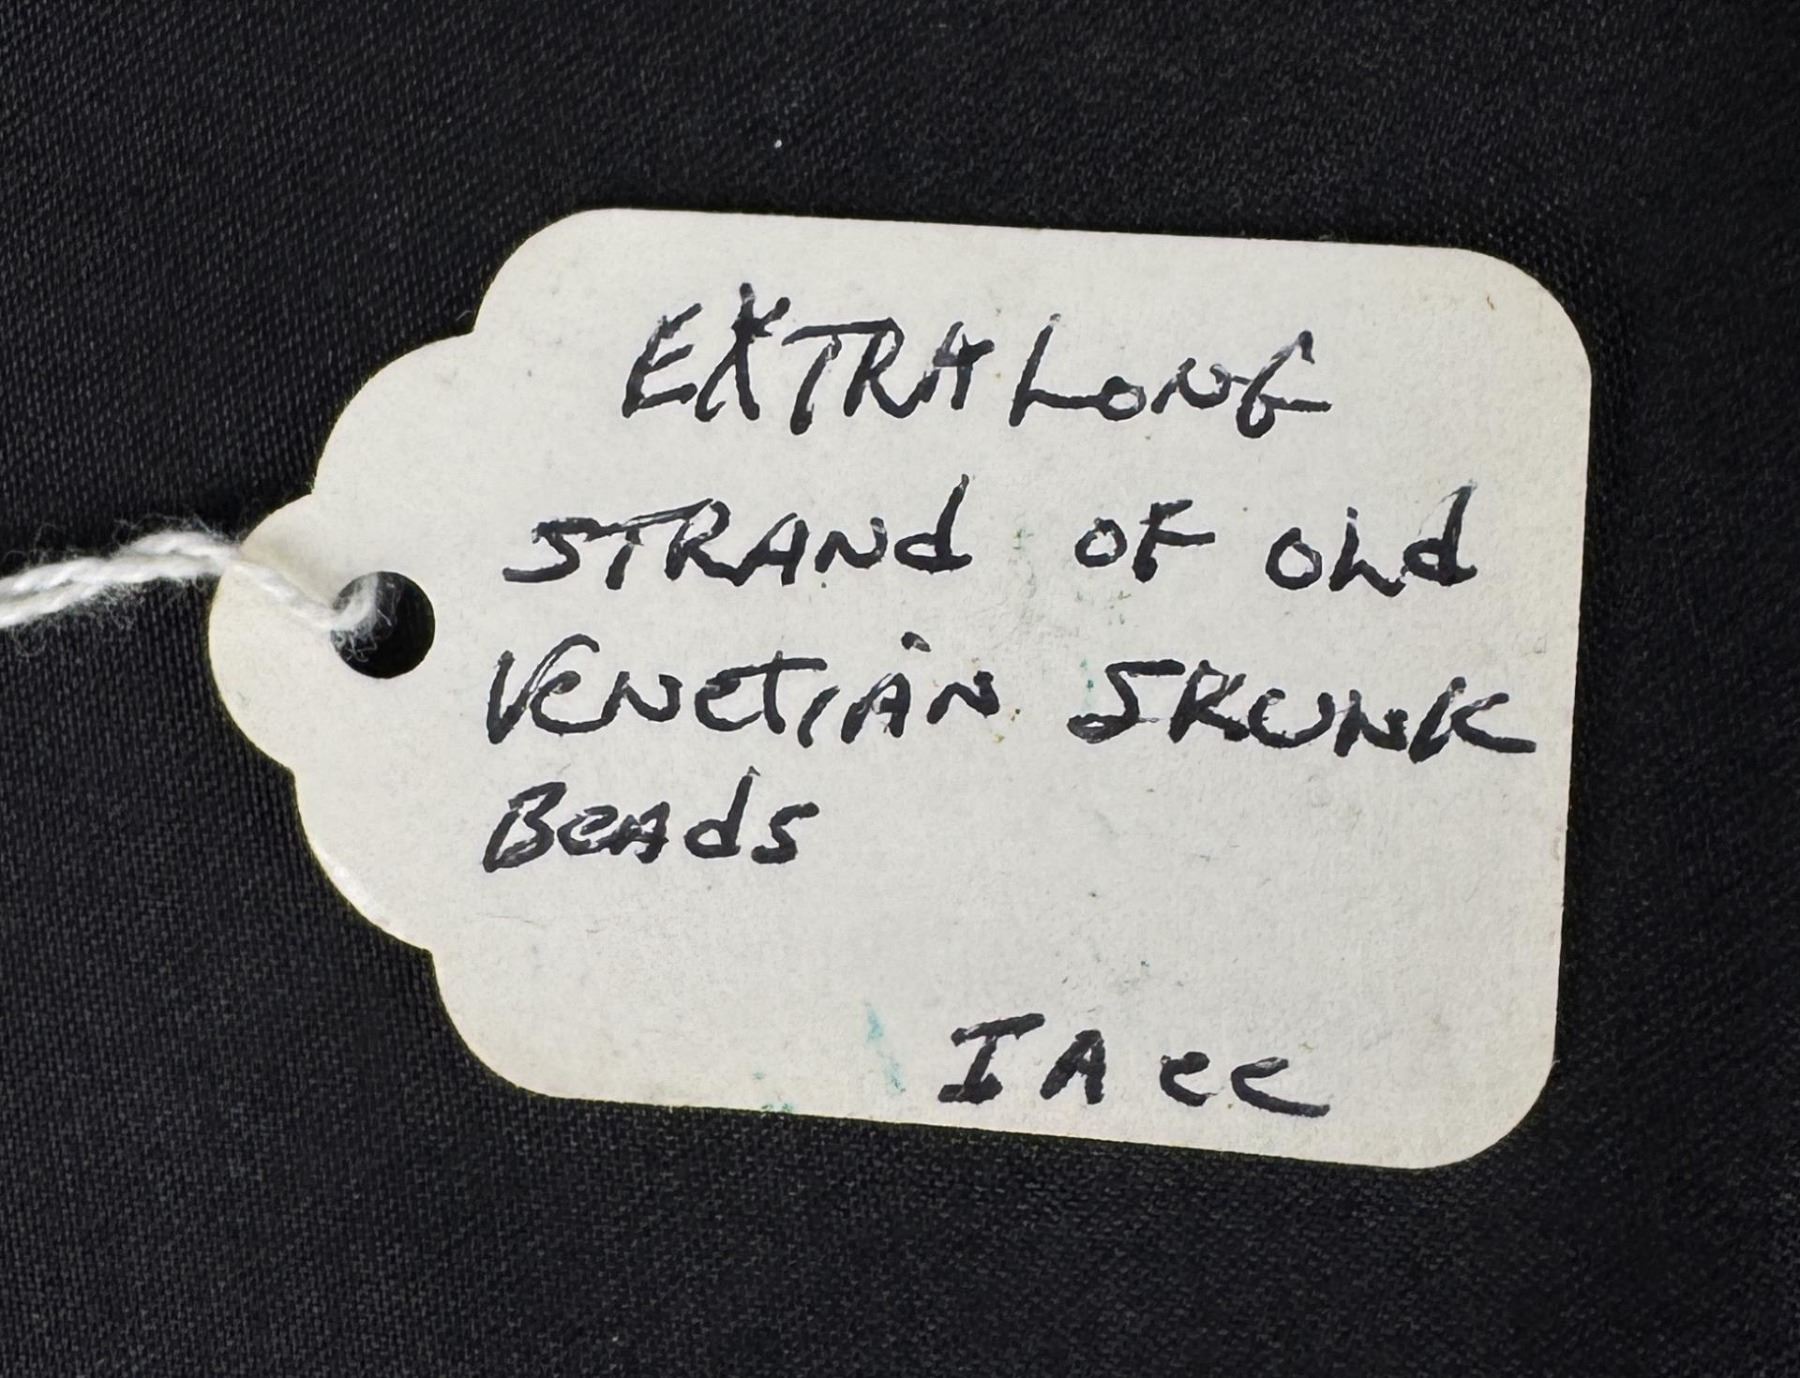 EXTRA LONG
STRANd OF OLd
VeNeTiAN SKUNK
BeAds
IAcc